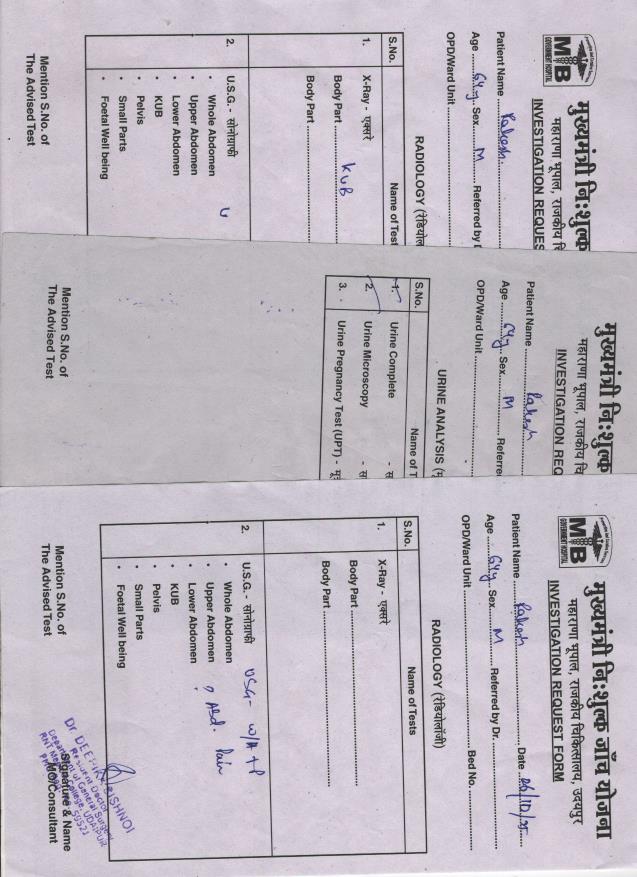 मुख्यमंत्री नि:शुल्क
महाराणा भूपाल, राजकीय चि
INVESTIGATION REQUES
MB
GOVERNMENT HOSPITAL
Patient Name Rakesh
Age 64y Sex M Referred by D
OPD/Ward Unit
RADIOLOGY (रेडियोल
S.No. Name of Test
1. X-Ray - एक्सरे
Body Part KUB
Body Part
2. U.S.G. - सोनोग्राफी
• Whole Abdomen
• Upper Abdomen
• Lower Abdomen
• KUB
• Pelvis
• Small Parts
• Foetal Well being
Mention S.No. of
The Advised Test
मुख्यमंत्री नि:शुल्क
महाराणा भूपाल, राजकीय चि
INVESTIGATION REQ
Patient Name Rakesh
Age 64y Sex M Referred
OPD/Ward Unit
URINE ANALYSIS (मू
S.No. Name of T
1. Urine Complete - स
2. Urine Microscopy - स
3. Urine Pregnancy Test (UPT) - मू
Mention S.No. of
The Advised Test
मुख्यमंत्री नि:शुल्क जाँच योजना
महाराणा भूपाल, राजकीय चिकित्सालय, उदयपुर
INVESTIGATION REQUEST FORM
MB
GOVERNMENT HOSPITAL
Patient Name Rakesh Date 26/10/25
Age 64y Sex M Referred by Dr.
OPD/Ward Unit Bed No.
RADIOLOGY (रेडियोलॉजी)
S.No. Name of Tests
1. X-Ray - एक्सरे
Body Part
Body Part
2. U.S.G. - सोनोग्राफी USG - W/A + P
• Whole Abdomen ? Abd. Pain
• Upper Abdomen
• Lower Abdomen
• KUB
• Pelvis
• Small Parts
• Foetal Well being
Mention S.No. of
The Advised Test
Signature & Name
MO/Consultant
Resident Doctor
Department of General Surgery